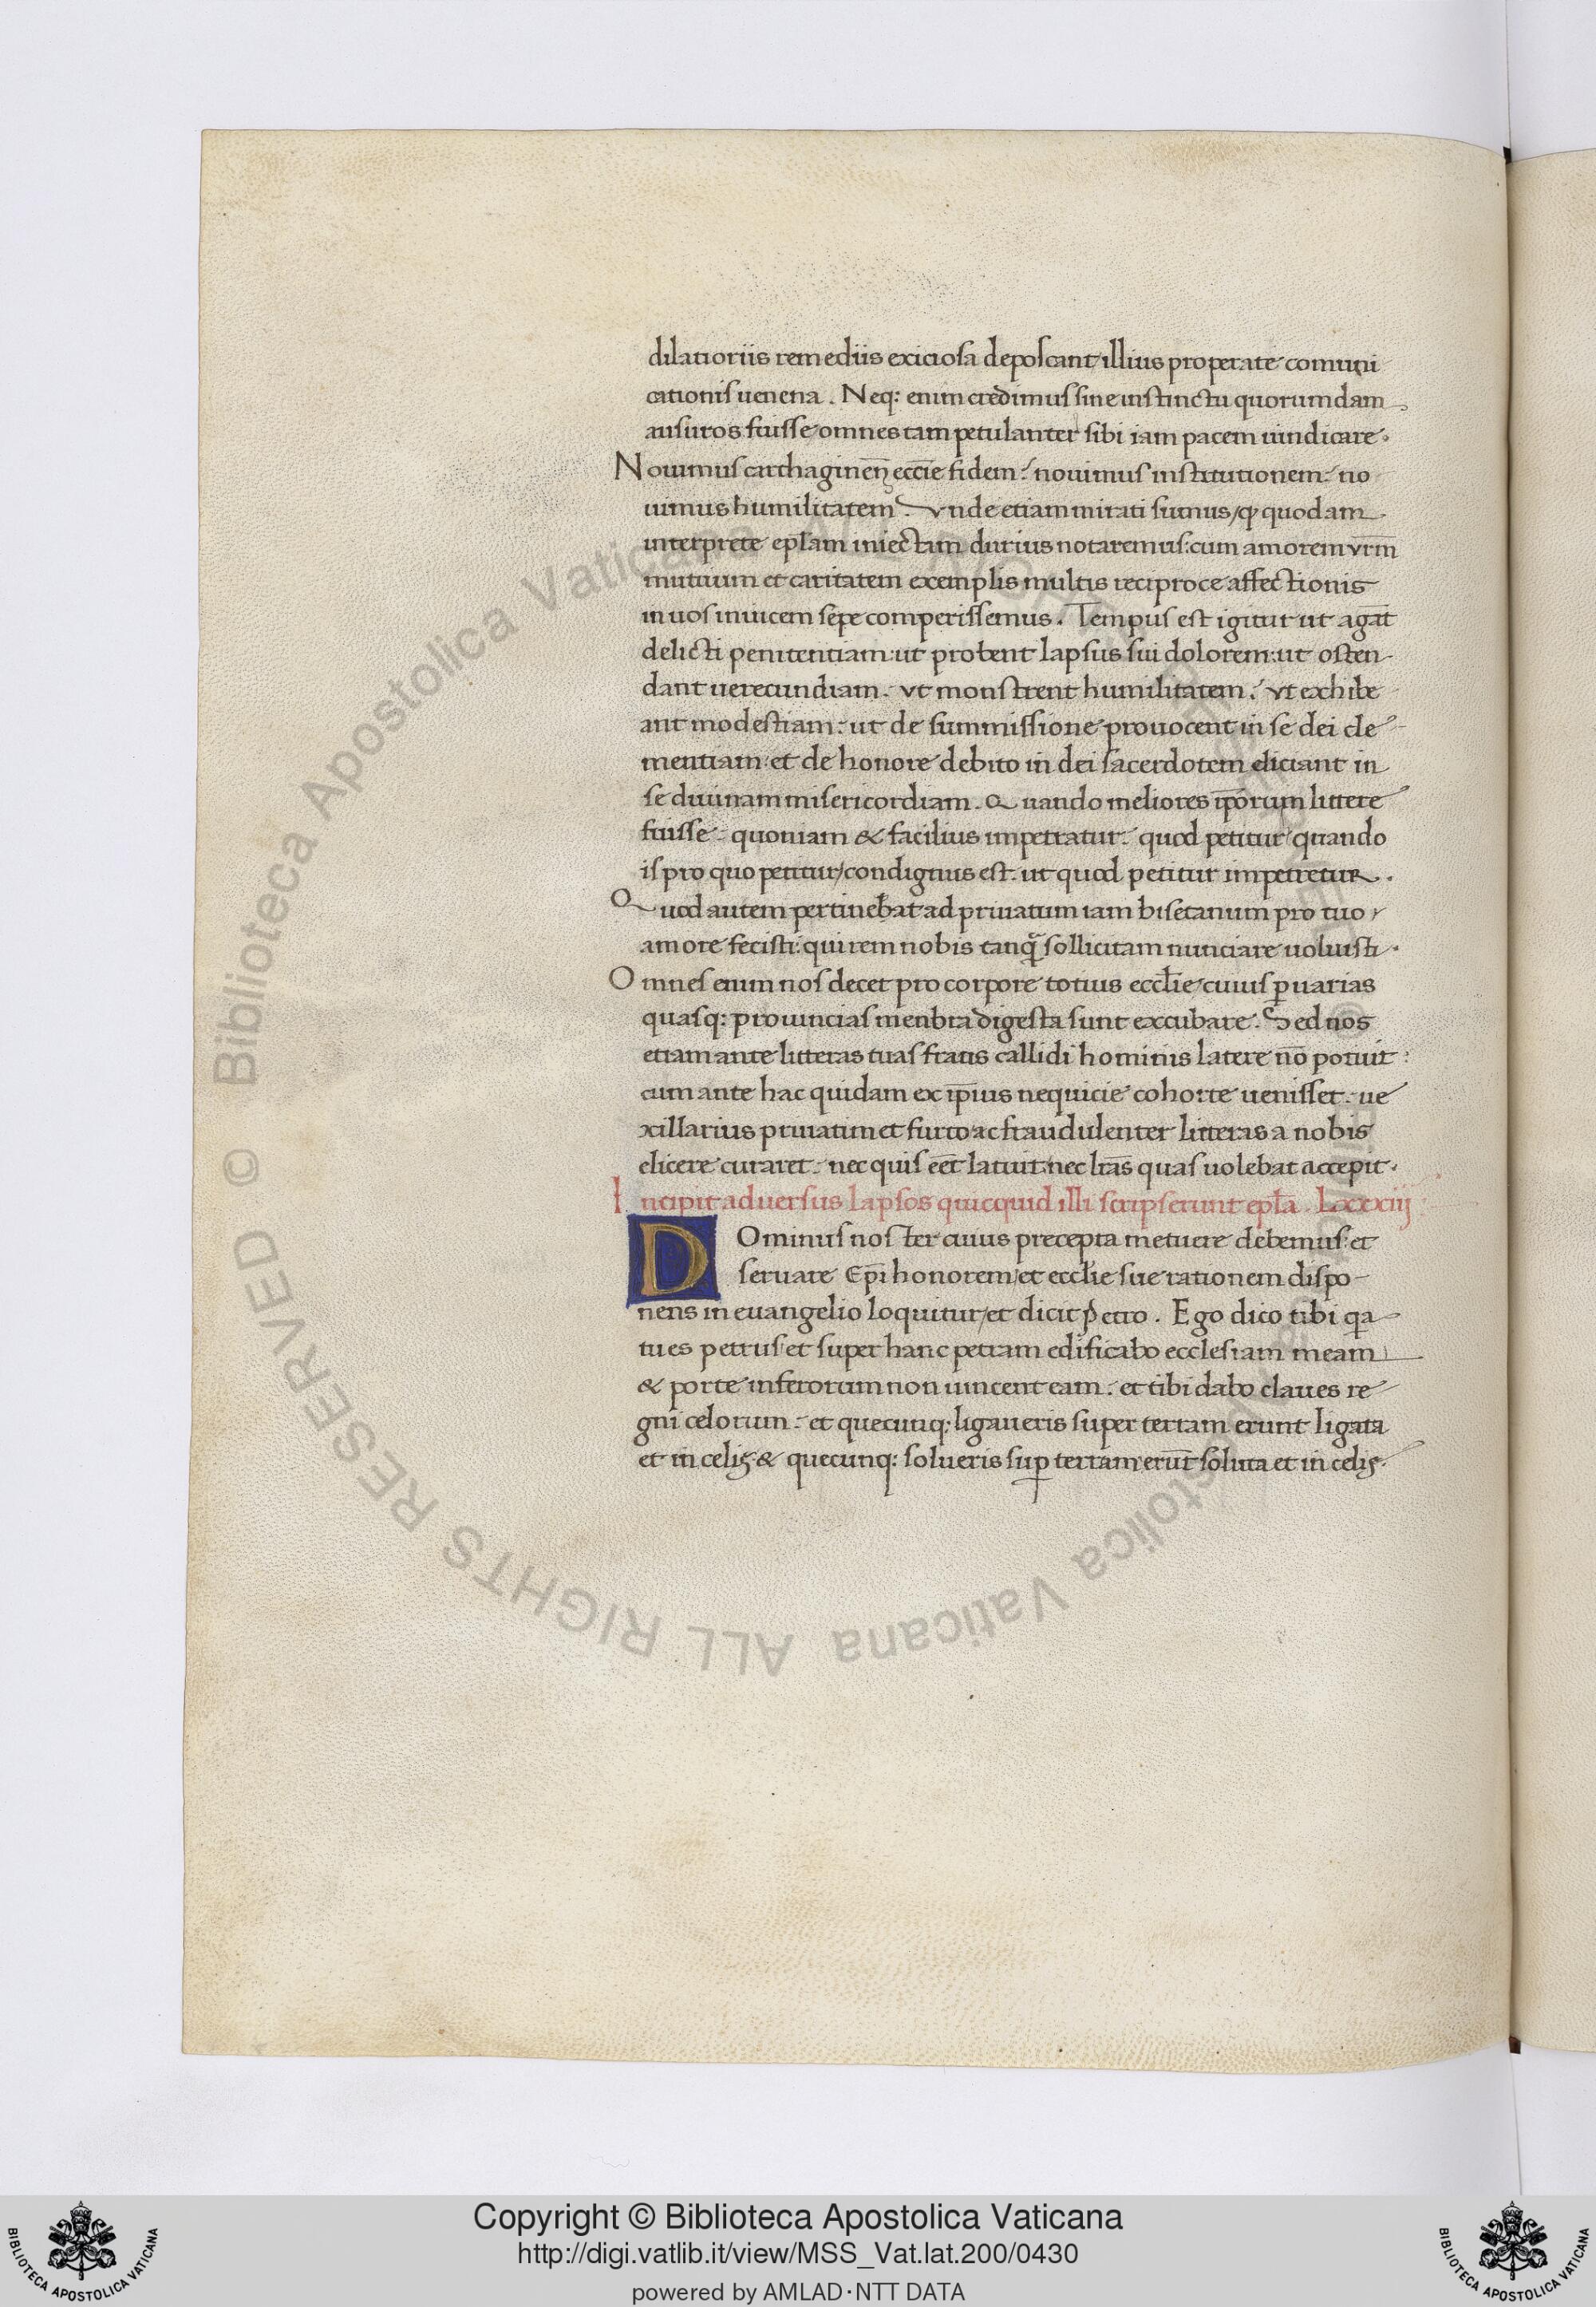 dilatoriis remediis exiciosa deposcant illius properate comuni
cationis uenena. Neq: enim credimus sine instinctu quorumdam
ausuros fuisse omnes tam petulanter sibi iam pacem uindicare.
Nouimus carthaginen̄ ecc̄ie fidem: nouimus institutionem: no
uimus humilitatem. Vnde etiam mirati sumus / ꝙ quodam
interprete ep̄lam iniectam durius notaremus: cum amorem vr̄m
mutuum et caritatem exemplis multis reciproce affectionis
in uos inuicem sepe comperissemus. Tempus est igitur ut agāt
delicti penitentiam: ut probent lapsus sui dolorem: ut osten-
dant uerecundiam. vt monstrent humilitatem: vt exhibe
ant modestiam: ut de summissione prouocent in se dei cle
mentiam: et de honore debito in dei sacerdotem eliciant in
se diuinam misericordiam. Quando meliores ip̄orum littere
fuisse: quoniam & facilius impetratur: quod petitur quando
is pro quo petitur / condignus est. ut quod petitur impetretur.
Quod autem pertinebat ad priuatum iam bisetanum pro tuo
amore fecisti: qui rem nobis tanꝗ̄ sollicitam nunciare uoluisti.
Omnes enim nos decet pro corpore totius eccl̄ie cuius ꝑ uarias
quasq: prouincias menbra digesta sunt excubare. Sed nos
etiam ante litteras tuas fratis callidi hominis latere nō potuit:
cum ante hac quidam ex ip̄ius nequicie cohorte uenisset: ue
xillarius priuatim et furto ac fraudulenter litteras a nobis
elicere curaret: nec quis eēt latuit: nec lr̄as quas uolebat accepit.
Incipit aduersus lapsos quicquid illi scripserunt epl̄a. Lxxxiij
DOminus noster cuius precepta metuere debemus: et
seruare Ep̄i honorem / et eccl̄ie sue rationem dispo-
nens in euangelio loquitur / et dicit Petro. Ego dico tibi ꝗa
tu es petrus: et super hanc petram edificabo ecclesiam meam
& porte inferorum non uincent eam: et tibi dabo claues re
gni celorum: et quecunq: ligaueris super terram erunt ligata
et in celis: & quecunq: solueris suꝑ terram erūt soluta et in celis.
© Biblioteca Apostolica Vaticana ALL RIGHTS RESERVED
Copyright © Biblioteca Apostolica Vaticana
http://digi.vatlib.it/view/MSS_Vat.lat.200/0430
powered by AMLAD·NTT DATA
BIBLIOTECA APOSTOLICA VATICANA
BIBLIOTECA APOSTOLICA VATICANA